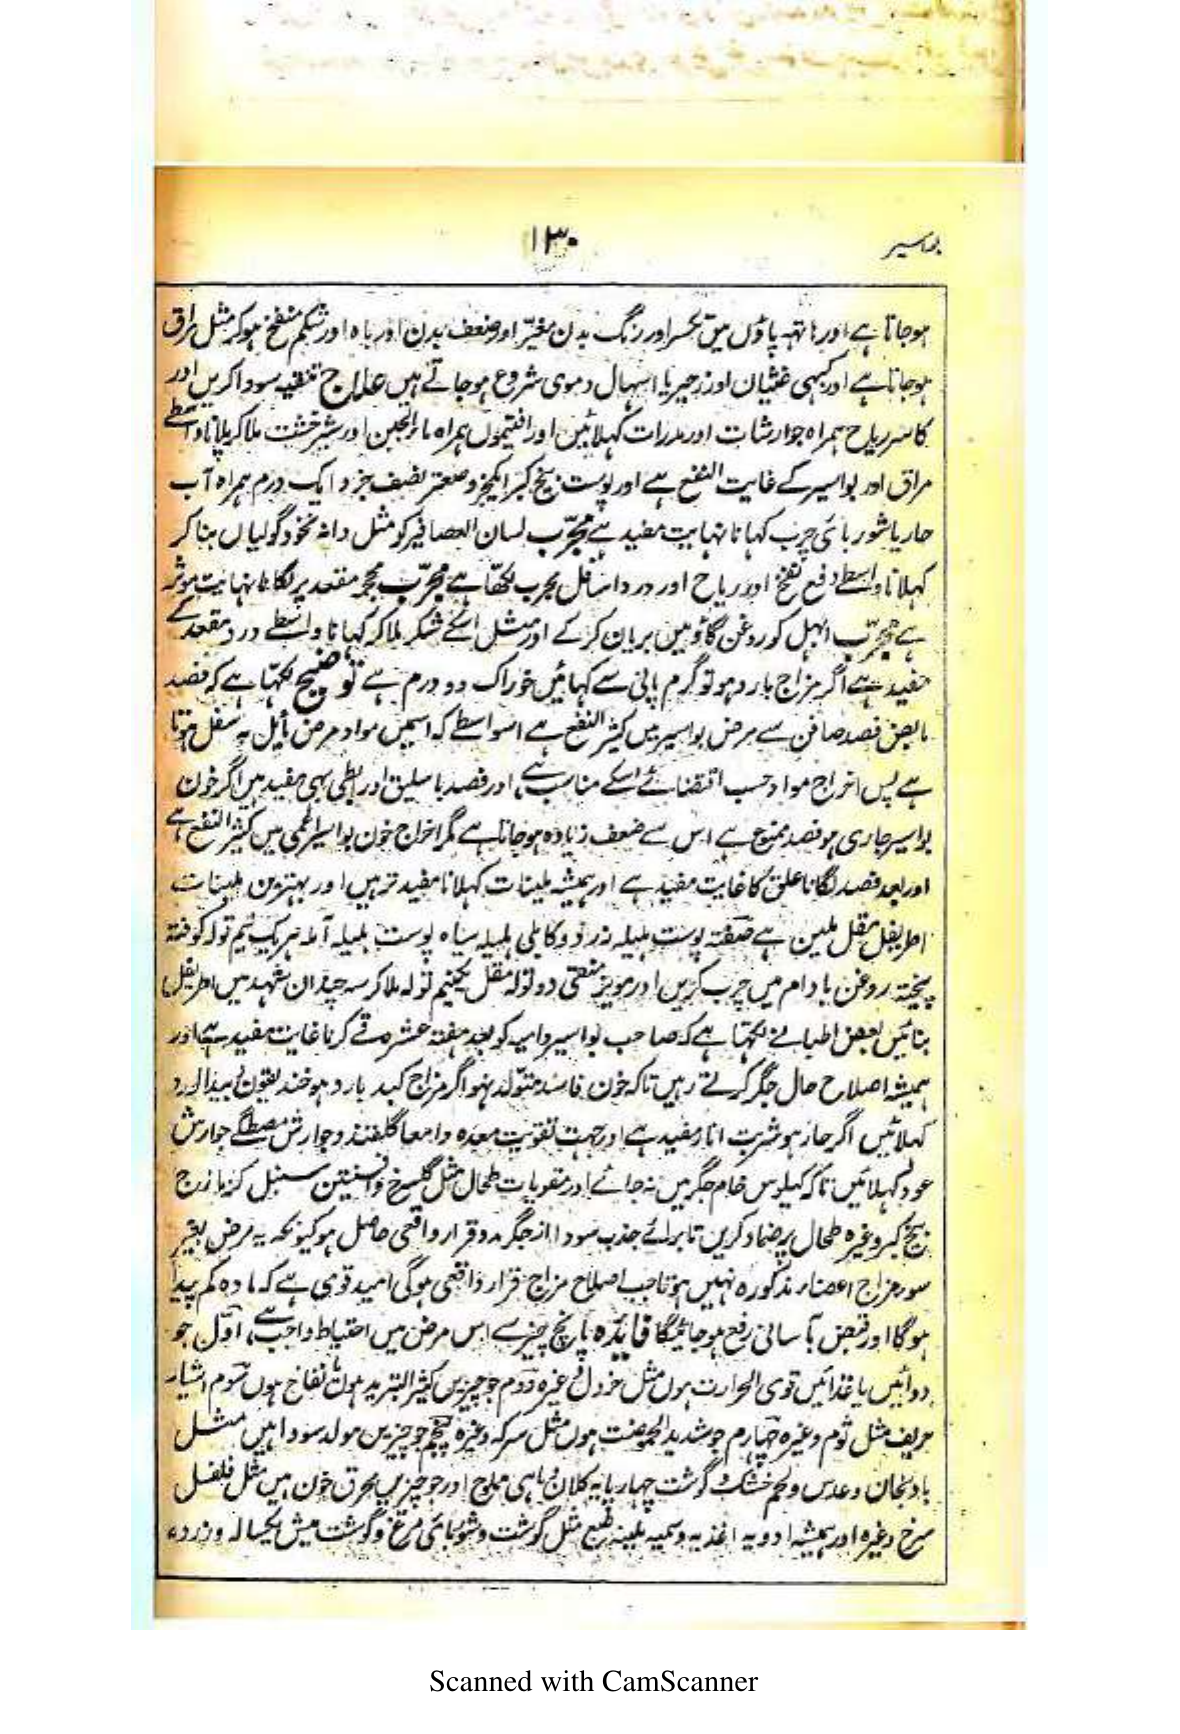 بواسیر
۱۳۰
ہوجاتا ہے اور ہاتھہ پاؤں میں تکسر اور رنگ بدن متغیّر اور ضعف بدن اور باہ اور شکم منتفخ ہوکر مثل مراق
ہوجاتا ہے اور کبھی غثیان اور زحیر یا اسہال دموی شروع ہوجاتے ہیں علاج تنقیہ سودا کریں اور
کاسر ریاح ہمراہ جوارشات اور مدرات کہلائیں اور افتیموں ہمراہ ماء الجبن اور شیر خشت ملاکر پلانا واسطے
مراق اور بواسیر کے غایت النفع ہے اور پوست بیخ کبر ایکجزو صعتر نصف جزو ایک درم ہمراہ آب
حار یا شوربائی چرب کہانا نہایت مفید ہے مجرّب لسان العصافیر کو مثل دانہ نخود گولیاں بنا کر
کہلانا واسطے دفع نفخ اور ریاح اور درد اسافل مجرب لکھا ہے مجرّب مقعد پر لگانا نہایت موثر
ہے مجرّب ابہل کو روغن گاؤ میں بریان کرکے اور مثل اسکے شکر ملاکر کہانا واسطے درد مقعد کے
مفید ہے اگر مزاج بارد ہو تو گرم پانی سے کہائیں خوراک دو درم ہے توضیح لکہا ہے کہ فصد
مابض فصد صافن سے مرض بواسیر میں کثیر النفع ہے اسواسطے کہ اسمیں مواد مرض مایل بہ سفل ہوتا
ہے پس اخراج مواد حسب اقتضائے اسکے مناسب ہے اور فصد باسلیق اور ابطی بہی مفید ہیں اگر خون
بواسیر جاری ہو فصد ممنوع ہے اس سے ضعف زیادہ ہوجاتا ہے مگر اخراج خون بواسیر میں کثیر النفع ہے
اور بعد فصد لگانا علق کا غایت مفید ہے اور ہمیشہ ملینات کہلانا مفید تر ہیں اور بہترین ملینات
اطریفل مقل ملین ہے صفتہ پوست ہلیلہ زرد و کابلی ہلیلہ سیاہ پوست بلیلہ آملہ ہریک نیم تولہ کوفتہ
بیختہ روغن بادام میں چرب کریں اور مویز منقی دو تولہ مقل یکنیم تولہ ملاکر سہ چندان شہد میں اطریفل
بنائیں بعض اطبا نے لکہا ہے کہ صاحب بواسیر دامیہ کو بعد ہفتہ عشرہ قے کرنا غایت مفید ہے اور
ہمیشہ اصلاح حال جگر کرتے رہیں تاکہ خون فاسد متولد نہو اگر مزاج کبد بارد ہو
کہلائیں اگر حار ہو شربت انار مفید ہے اور جہت تقویت معدہ و امعا گلقند و جوارش مصطگی جوارش
عود کہلائیں تاکہ کیلوس خام جگر میں نہ جائے اور مقویات طحال مثل گلسرخ و افسنتین سنبل کزمازج
بیخ کبر وغیرہ طحال پر ضماد کریں تا برائے جذب سودا از جگر مدد قرار واقعی حاصل ہو کیونکہ یہ مرض بغیر
سوء مزاج اعضاء مذکورہ نہیں ہوتا جب اصلاح مزاج قرار واقعی ہوگی امید قوی ہے کہ مادہ کم پیدا
ہوگا اور قبض بآسانی رفع ہوجائیگا فایدہ پانچ چیز سے اس مرض میں احتیاط واجب ہے، اوّل جو
دوائیں یا غذائیں قوی الحرارت ہوں مثل خردل وغیرہ دوم جو چیزیں کثیر التبرید ہوں یا نفاخ ہوں سوم اشیاء
حریف مثل ثوم وغیرہ چہارم جو شدید الحموضت ہوں مثل سرکہ وغیرہ پنجم جو چیزیں مولد سودا ہیں مثل
بادنجان و عدس و لحم خشک و گوشت چہارپایہ کلان و ماہی مملح اور جو چیزیں محرق خون ہیں مثل فلفل
سرخ وغیرہ اور ہمیشہ ادویہ اغذیہ دسمیہ ملینہ طبع مثل گوشت و شوربائی مرغ و گوشت میش یکسالہ و زردہ
Scanned with CamScanner